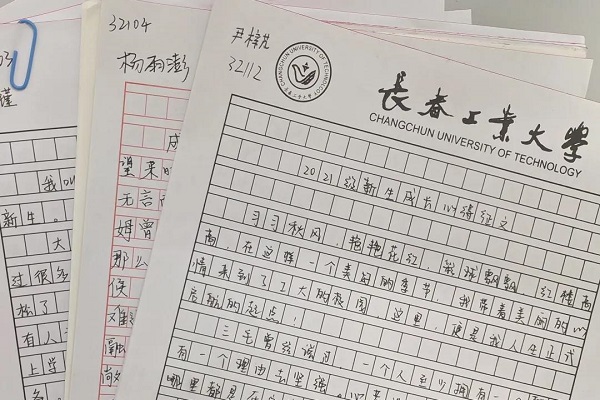 32104
杨雨澎
瑾
我
新生。
大
过很多
松了
有人
上学
成
望来时
无言
姆曾
那么
候
难
融
敞
32112
CHANGCHUN UNIVERSITY OF TECHNOLOGY
长春工业大学
CHANGCHUN UNIVERSITY OF TECHNOLOGY
2021级新生成长心得征文
习习秋风,艳艳花红,我球飘飘,红楼高
高,在这样一个美好的季节,我带着美丽的心
情来到了工大的校园,这里,便是我人生正式
启航的起点;
三毛曾经说过,一个人至少拥有一个
有一个理由去坚强。
哪里都是在